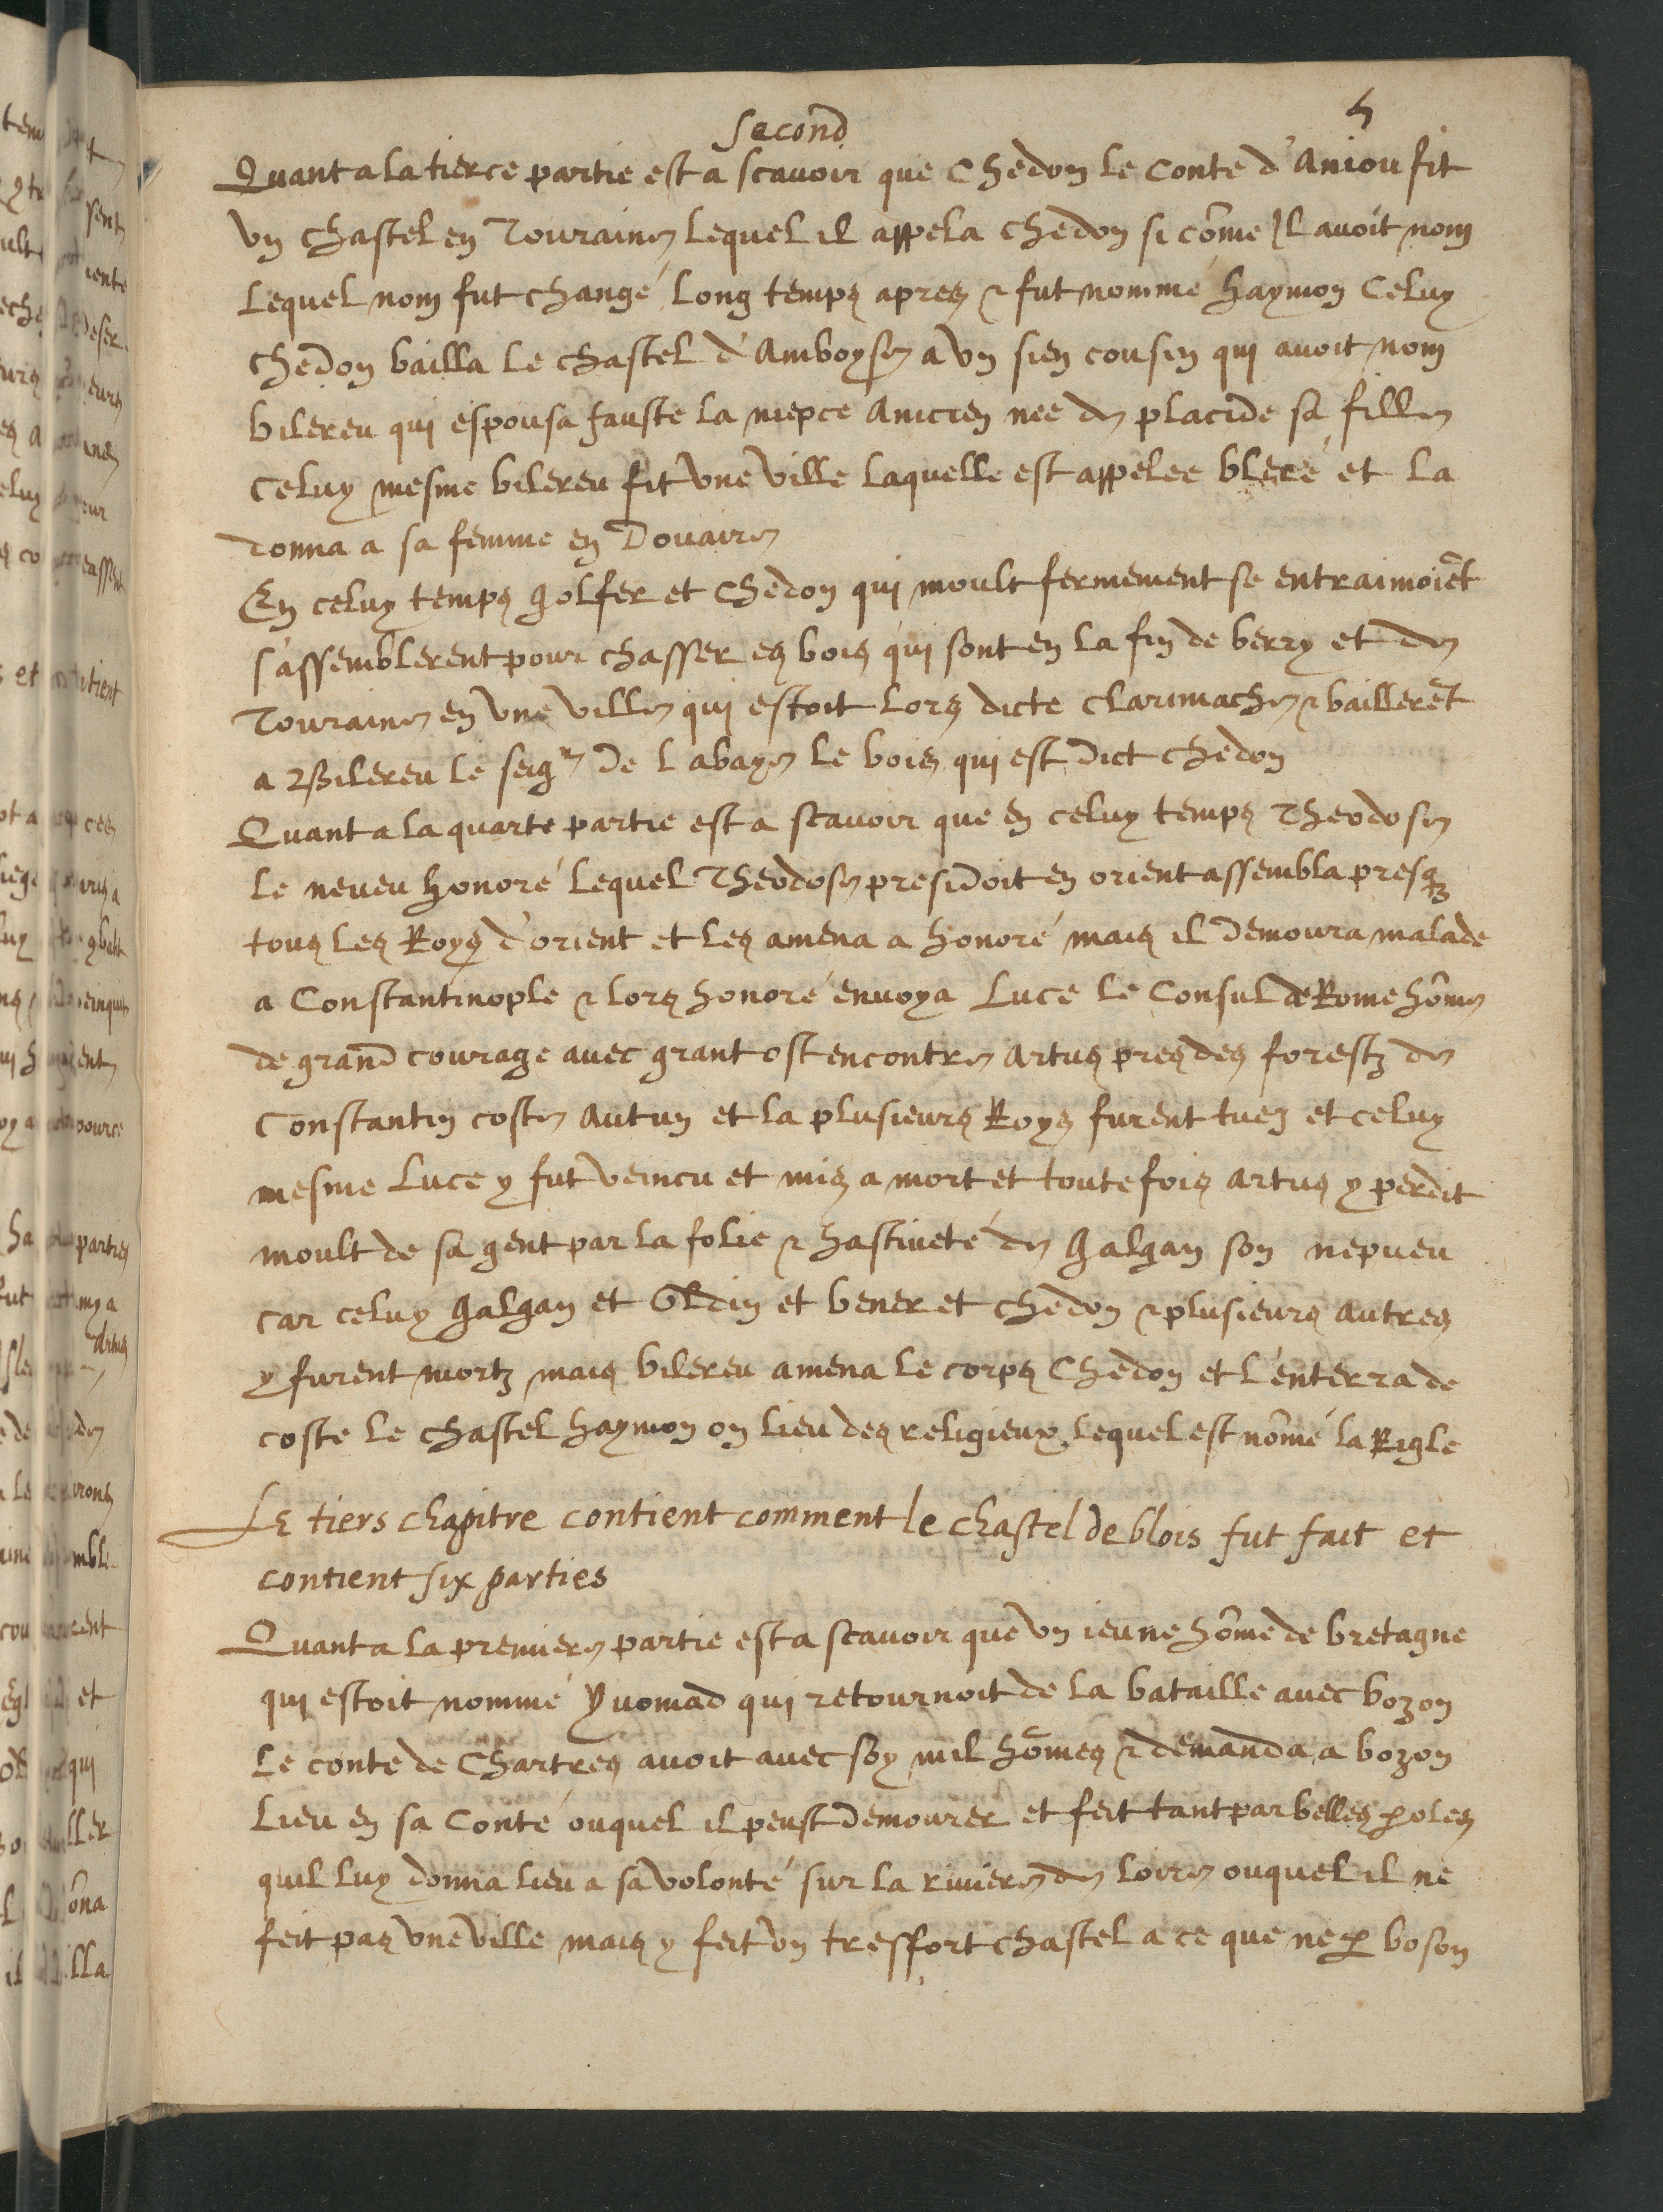 second
5
Quant a la tierce partie est a scavoir que Chedon le Conte d'Aniou fit
vn chastel en Touraine lequel il appela chedon si cõme Il avoit nom
lequel nom fut changé long temps apres & fut nommé haymon Celuy
chedon bailla le chastel d'Amboyse a vn sien cousin qui avoit nom
bilereu qui espousa fauste la niepce Anicien nee de placide sa fille
Celuy mesme bilereu fit vne ville laquelle est appelee bleré et la
donna a sa femme en Douaire
En celuy temps golfer et Chedon qui moult fermement se entraimoiẽt
s'assemblerent pour chasser es bois qui sont en la fin de berry et de
Touraine en vne ville qui estoit lors dicte Clarimache & baillerẽt
a Bilereu le seigr de Labaye le bois qui est dict chedon
Quant a la quarte partie est a scavoir que en celuy temps Theodose
le neveu honoré lequel Theodose presidoit en orient assembla presqz
tous les Roys d'orient et les amena a honoré mais il demoura malade
a Constantinople & lors honoré envoya Luce le Consul de Rome hõme
de grand courage avec grant ost encontre Artus pres des forestz de
Constantin coste Autun et la plusieurs Roys furent tuez et celuy
mesme Luce y fut veincu et mis a mort et toutefois Artus y perdit
moult de sa gent par la folie & hastiveté de galgan son nepveu
car celuy galgan et Oldin et bener et chedon & plusieurs autres
y furent mortz mais bilereu amena le corps Chedon et l'enterra de
coste le chastel haymon on lieu des religieux lequel est nõmé la Rigle
Le tiers chapitre contient comment le chastel de blois fut fait et
contient six parties
Quant a la premiere partie est a scavoir que vn ieune hõme de bretagne
qui estoit nommé Yvomad qui retournoit de la bataille avec bozon
le conte de Chartres avoit avec soy mil hõmes & demanda a bozon
lieu en sa Conté ouquel il peust demourer et feit tant par belles ꝑoles
quil luy donna lieu a sa volonté sur la riviere de loire ouquel il ne
feit pas vne ville mais y feit vn tresfort chastel a ce que ne ꝑ boson